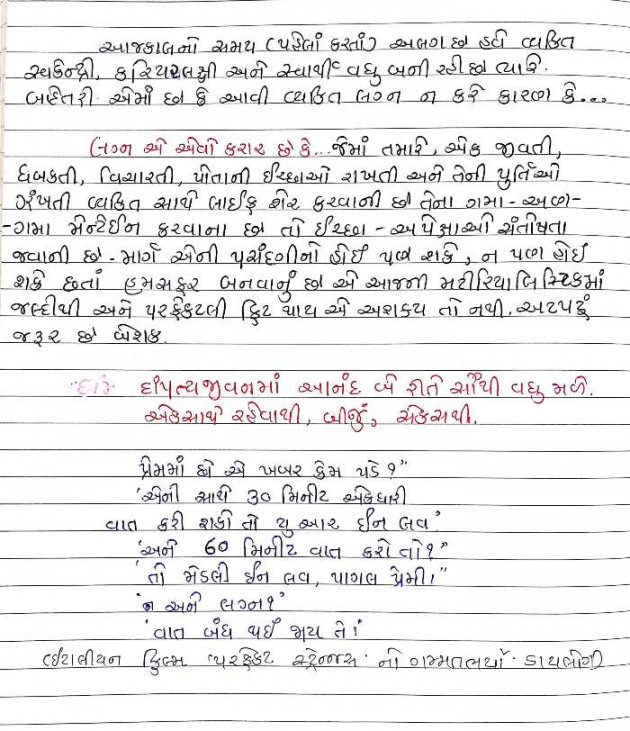 આજકાલનો સમય (પહેલાં કરતાં) અલગ છે હવે વ્યકિત
સ્વકેન્દ્રી, કરિયરલક્ષી અને સ્વાર્થી વધુ બની રહી છે ત્યારે.
બહેતરી એમાં છે કે આવી વ્યકિત લગ્ન ન કરે કારણ કે...
લગ્ન એ એવો કરાર છે કે...જેમાં તમારે, એક જીવતી,
ધબકતી, વિચારતી, પોતાની ઈચ્છાઓ રાખતી અને તેની પૂર્તિઓ
ઝંખતી વ્યકિત સાથે લાઈફ શેર કરવાની છે તેના ગમા-અણ-
-ગમા મેન્ટેઈન કરવાના છે તો ઈચ્છા-અપેક્ષાઓ સંતોષતા
જવાની છે. માર્ગ એની પસંદગીનો હોઈ પણ શકે, ન પણ હોઈ
શકે છતાં હમસફર બનવાનું છે એ આજની મટીરિયાલિસ્ટિકમાં
જલ્દીથી અને પરફેકટલી ફિટ થાય એ અશકય તો નથી. અટપટું
જરૂર છે બેશક.
દાંપત્યજીવનમાં આનંદ બે રીતે સૌથી વધુ મળે.
એકસાથે રહેવાથી, બીજું, સેકસથી.
પ્રેમમાં છો એ ખબર કેમ પડે ?"
'એની સાથે 30 મિનીટ એકધારી
વાત કરી શકો તો યુ આર ઈન લવ'
'અને 60 મિનીટ વાત કરો તો?"
'તો મેડલી ઈન લવ, પાગલ પ્રેમી!"
'ન અને લગ્ન?'
'વાત બંધ થઈ જાય તે!
ઈટાલીયન ફિલ્મ 'પરફેકટ સ્ટ્રેન્જર્સ' નો ગમ્મતભર્યો ડાયલોગ